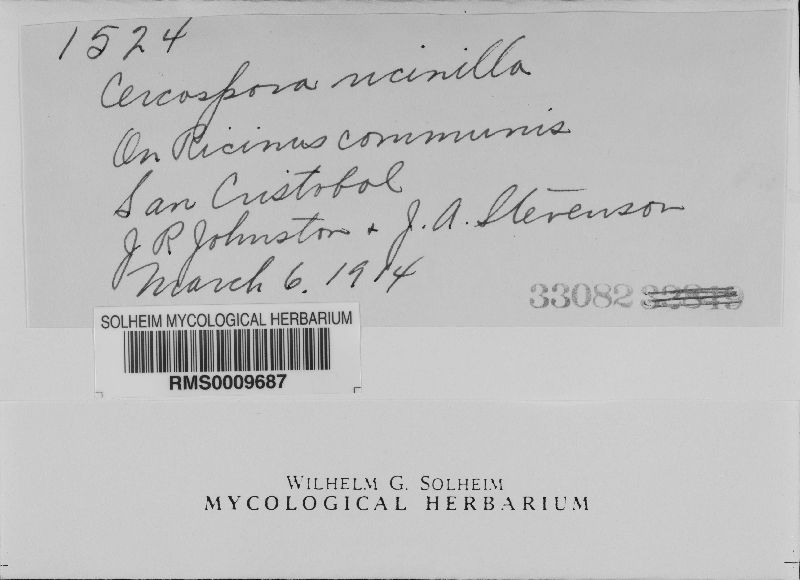 1524
Cercospora ricinilla
On Ricinus communis
San Cristobal
J R Johnston + J. A. Stevenson
March 6. 1914
33082
SOLHEIM MYCOLOGICAL HERBARIUM
RMS0009687
WILHELM G. SOLHEIM
MYCOLOGICAL HERBARIUM